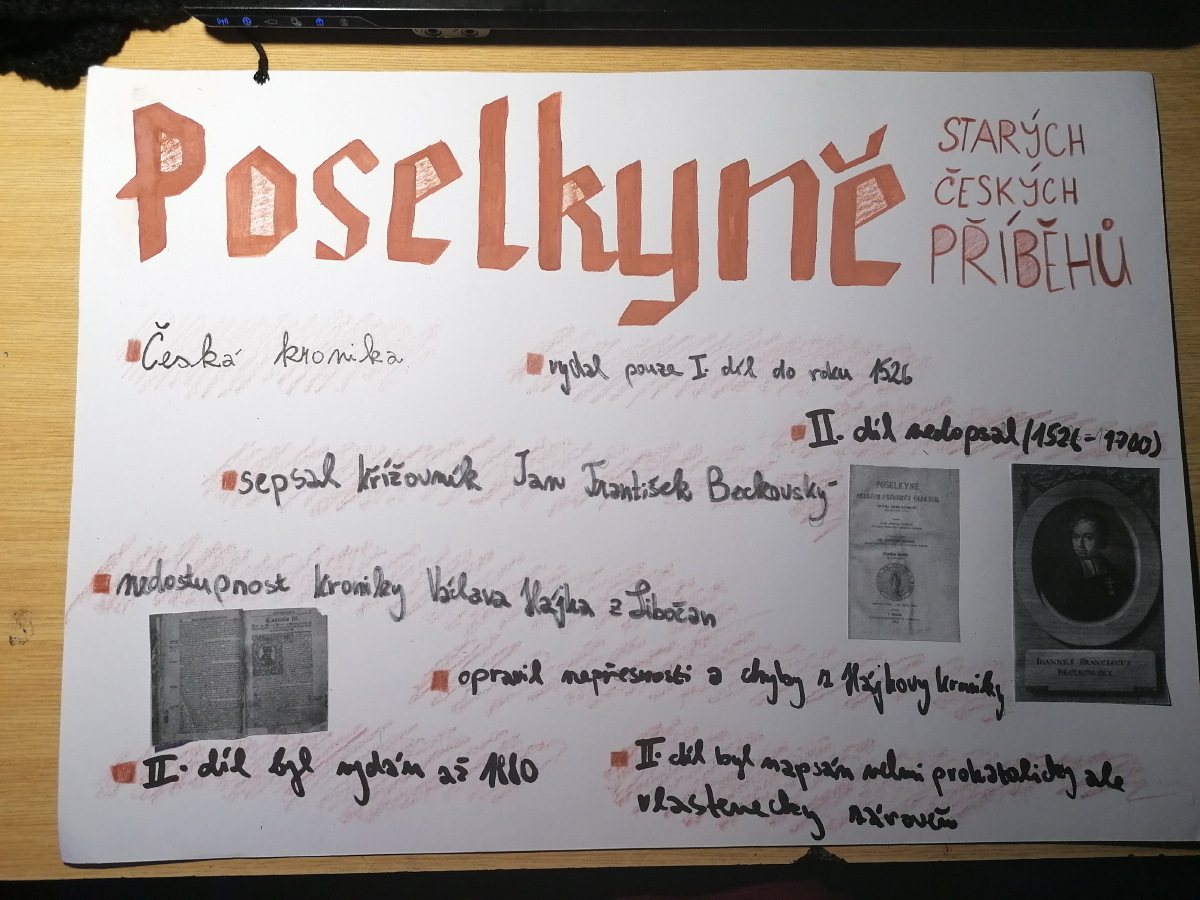 Poselkyně
STARÝCH
ČESKÝCH
PŘÍBĚHŮ
Česká kronika
vydal pouze I. díl do roku 1526
II. díl nedopsal (1526 - 1700)
sepsal křížovník Jan František Beckovský
POSELKYNĚ
nedostupnost kroniky Václava Hájka z Libočan
IOANNES FRANCISCUS
BECZKOWSKY
opravil nepřesnosti a chyby z Hájkovy kroniky
II. díl byl vydán až 1880
II. díl byl napsán velmi prokatolicky ale
vlastenecky zároveň